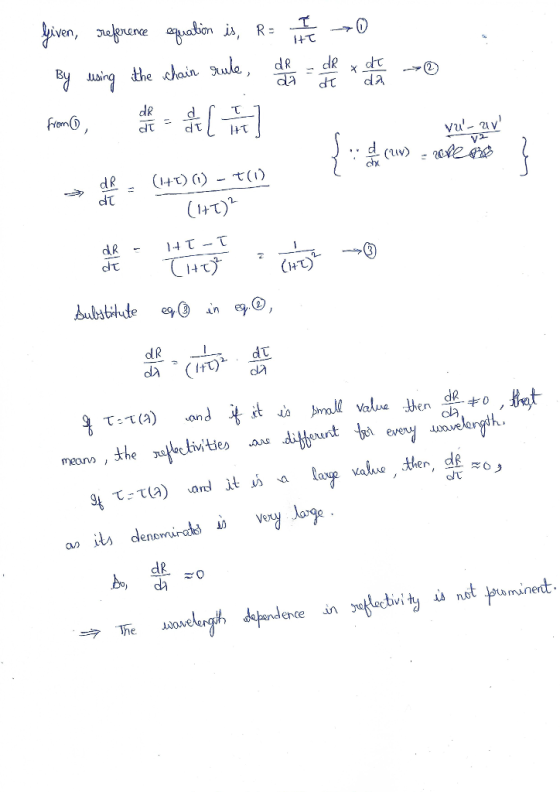 Given, reference equation is, R = τ/(1+τ) → ①
By using the chain rule, dR/dλ = dR/dτ × dτ/dλ → ②
from ①, dR/dτ = d/dτ [ τ/(1+τ) ]
{ ∵ d/dx (u/v) = (vu' − uv')/v² }
⇒ dR/dτ = ((1+τ)(1) − τ(1))/(1+τ)²
dR/dτ = (1+τ−τ)/(1+τ)² = 1/(1+τ)² → ③
Substitute eq ③ in eq. ②,
dR/dλ = 1/(1+τ)² · dτ/dλ
If τ = τ(λ) and if it is small value then dR/dλ ≠ 0, that
means, the reflectivities are different for every wavelength.
If τ = τ(λ) and it is a large value, then, dR/dτ ≈ 0,
as its denominator is very large.
So, dR/dλ ≈ 0
⇒ The wavelength dependence in reflectivity is not prominent.